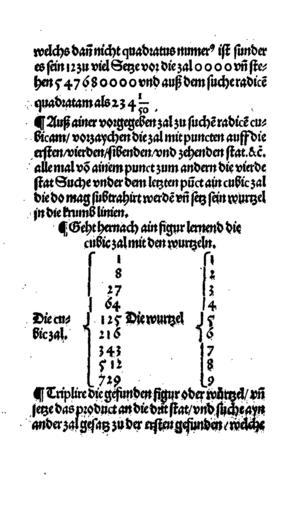 welchs dañ nicht quadratus numerꝰ ist sunder
es sein 123 zu viel Setze vor die zal 0000 vñ ste-
hen 547680000 vnd auß dem suche radicē
quadratam als 234 1/50.
¶ Auß ainer vorgegeben zal zu suchē radicē cu-
bicam/ vorzaychen die zal mit puncten auff die
ersten/vierden/sibenden/vnd zehenden stat.⁊c.
alle mal vō ainem punct zum andern die vierde
stat Suche vnder dem letzten pūct ain cubic zal
die do mag subtrahirt werdē vñ setz sein wurtzel
jn die krumb linien.
¶ Geht hernach ain figur lernend die
cubic zal mit den wurtzeln.
Die cu-
bic zal.
1
8
27
64
125
216
343
512
729
Die wurtzel
1
2
3
4
5
6
7
8
9
¶ Triplire die gefunden figur oder würtzel/ vñ
setze das product an die drit stat/vnd suche ayn
ander zal gesatz zu der ersten gefunden/ welche